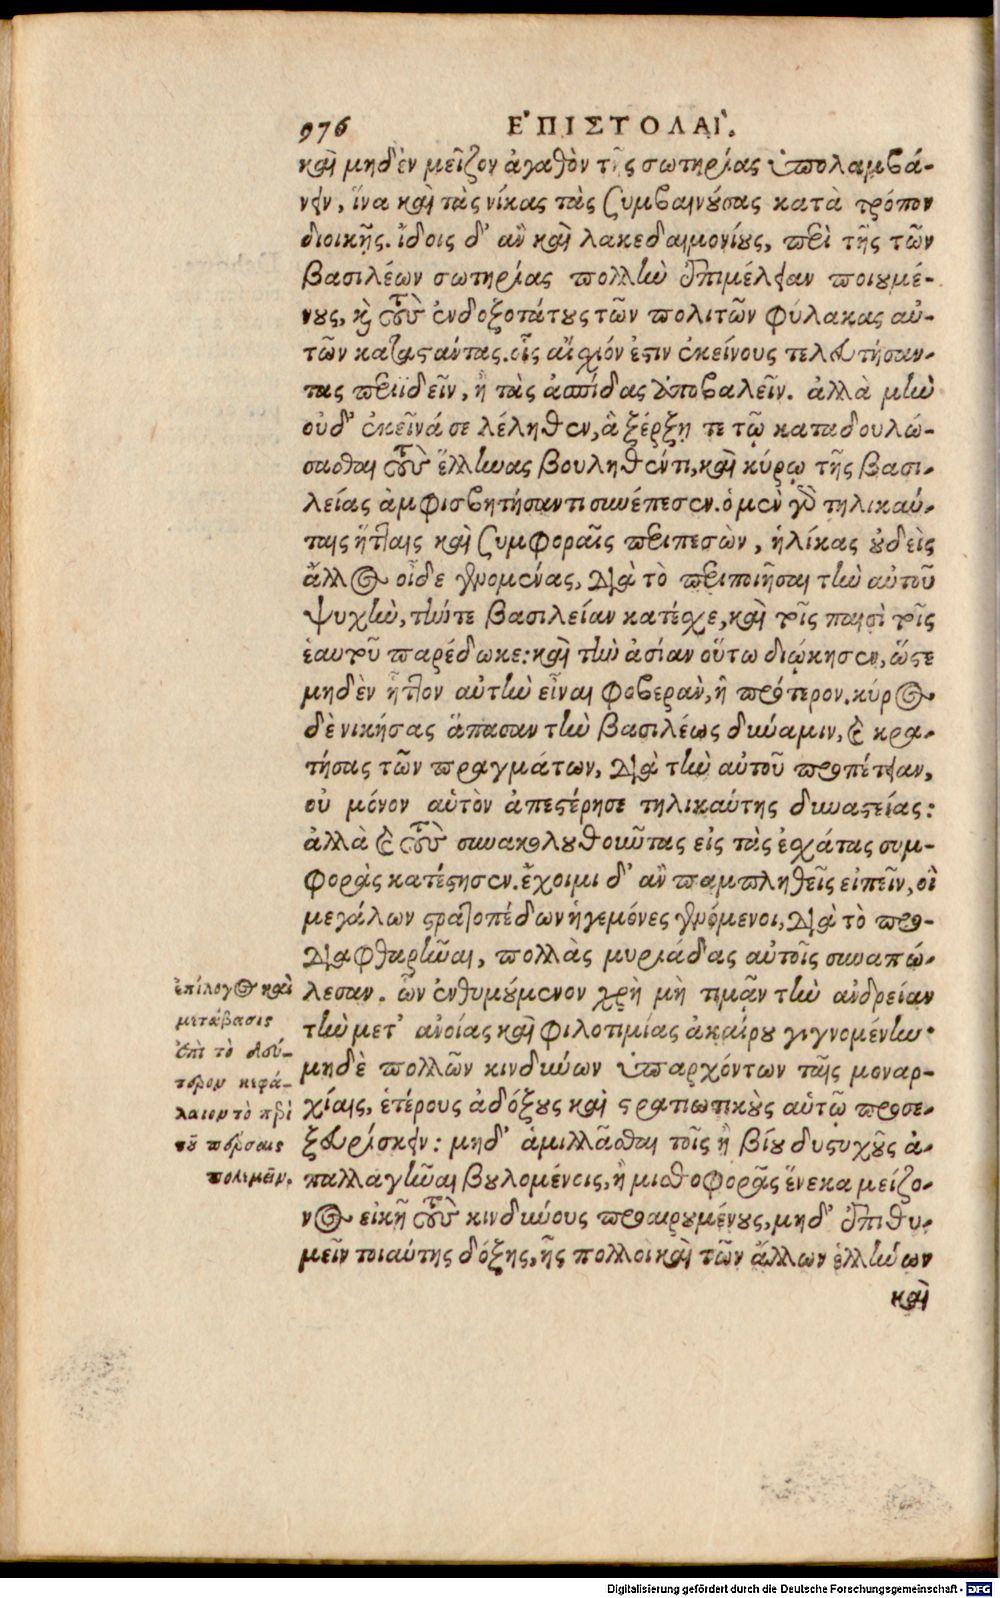 976 ἘΠΙΣΤΟΛΑΙ.
καὶ μηδὲν μεῖζον ἀγαθὸν τῆς σωτηρίας ὑπολαμβά-
νειν, ἵνα καὶ τὰς νίκας τὰς ξυμβαινούσας κατὰ τρόπον
διοικῇς. ἴδοις δ' ἂν καὶ λακεδαιμονίους, περὶ τῆς τῶν
βασιλέων σωτηρίας πολλὴν ἐπιμέλειαν ποιουμέ-
νους, καὶ τοὺς ἐνδοξοτάτους τῶν πολιτῶν φύλακας αὐ-
τῶν καταστάντας. οἷς αἴσχιόν ἐστιν ἐκείνους τελευτήσαν-
τας περιϊδεῖν, ἢ τὰς ἀσπίδας ἀποβαλεῖν. ἀλλὰ μὴν
οὐδ' ἐκεῖνά σε λέληθεν, ἃ ξέρξῃ τε τῷ καταδουλώ-
σασθαι τοὺς ἕλληνας βουληθέντι, καὶ κύρῳ τῆς βασι-
λείας ἀμφισβητήσαντι συνέπεσεν. ὁ μὲν γὰρ τηλικαύ-
ταις ἥτταις καὶ ξυμφοραῖς περιπεσὼν, ἡλίκας οὐδεὶς
ἄλλος οἶδε γενομένας, διὰ τὸ περιποιῆσαι τὴν αὑτοῦ
ψυχὴν, τήν τε βασιλείαν κατέσχε, καὶ τοῖς παισὶ τοῖς
ἑαυτοῦ παρέδωκε: καὶ τὴν ἀσίαν οὕτω διῴκησεν, ὥστε
μηδὲν ἧττον αὐτὴν εἶναι φοβερὰν, ἢ πρότερον. κῦρος
δὲ νικήσας ἅπασαν τὴν βασιλέως δύναμιν, καὶ κρα-
τήσας τῶν πραγμάτων, διὰ τὴν αὑτοῦ προπέτειαν,
οὐ μόνον αὑτὸν ἀπεστέρησε τηλικαύτης δυναστείας:
ἀλλὰ καὶ τοὺς συνακολουθοῦντας εἰς τὰς ἐσχάτας συμ-
φορὰς κατέστησεν. ἔχοιμι δ' ἂν παμπληθεῖς εἰπεῖν, οἳ
μεγάλων στρατοπέδων ἡγεμόνες γενόμενοι, διὰ τὸ προ-
διαφθαρῆναι, πολλὰς μυριάδας αὑτοῖς συναπώ-
λεσαν. ὧν ἐνθυμούμενον χρὴ μὴ τιμᾶν τὴν ἀνδρείαν
τὴν μετ' ἀνοίας καὶ φιλοτιμίας ἀκαίρου γιγνομένην·
μηδὲ πολλῶν κινδύνων ὑπαρχόντων ταῖς μοναρ-
χίαις, ἑτέρους ἀδόξους καὶ στρατιωτικοὺς αὑτῷ προσε-
ξευρίσκειν: μηδ' ἁμιλλᾶσθαι τοῖς ἢ βίου δυστυχοῦς ἀ-
παλλαγῆναι βουλομένοις, ἢ μισθοφορᾶς ἕνεκα μείζο-
νος εἰκῇ τοὺς κινδύνους προαιρουμένους, μηδ' ἐπιθυ-
μεῖν τοιαύτης δόξης, ἧς πολλοὶ καὶ τῶν ἄλλων ἑλλήνων
καὶ
ἐπίλογος καὶ
μετάβασις
ἐπὶ τὸ δεύ-
τερον κεφά-
λαιον τὸ περὶ
τοῦ πέρσαις
πολεμεῖν.
Digitalisierung gefördert durch die Deutsche Forschungsgemeinschaft - DFG